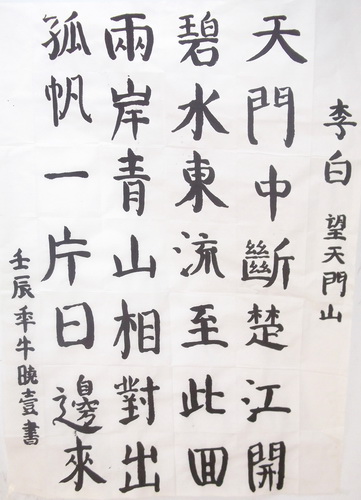 李白 望天門山
天門中斷楚江開
碧水東流至此回
兩岸青山相對出
孤帆一片日邊來
壬辰年牛曉壹書